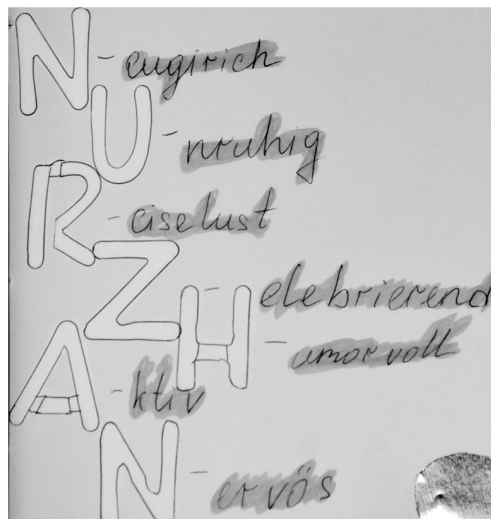 N-eugirich
U-nruhig
R-eiselust
Z-elebrierend
H-umorvoll
A-ktiv
N-ervös